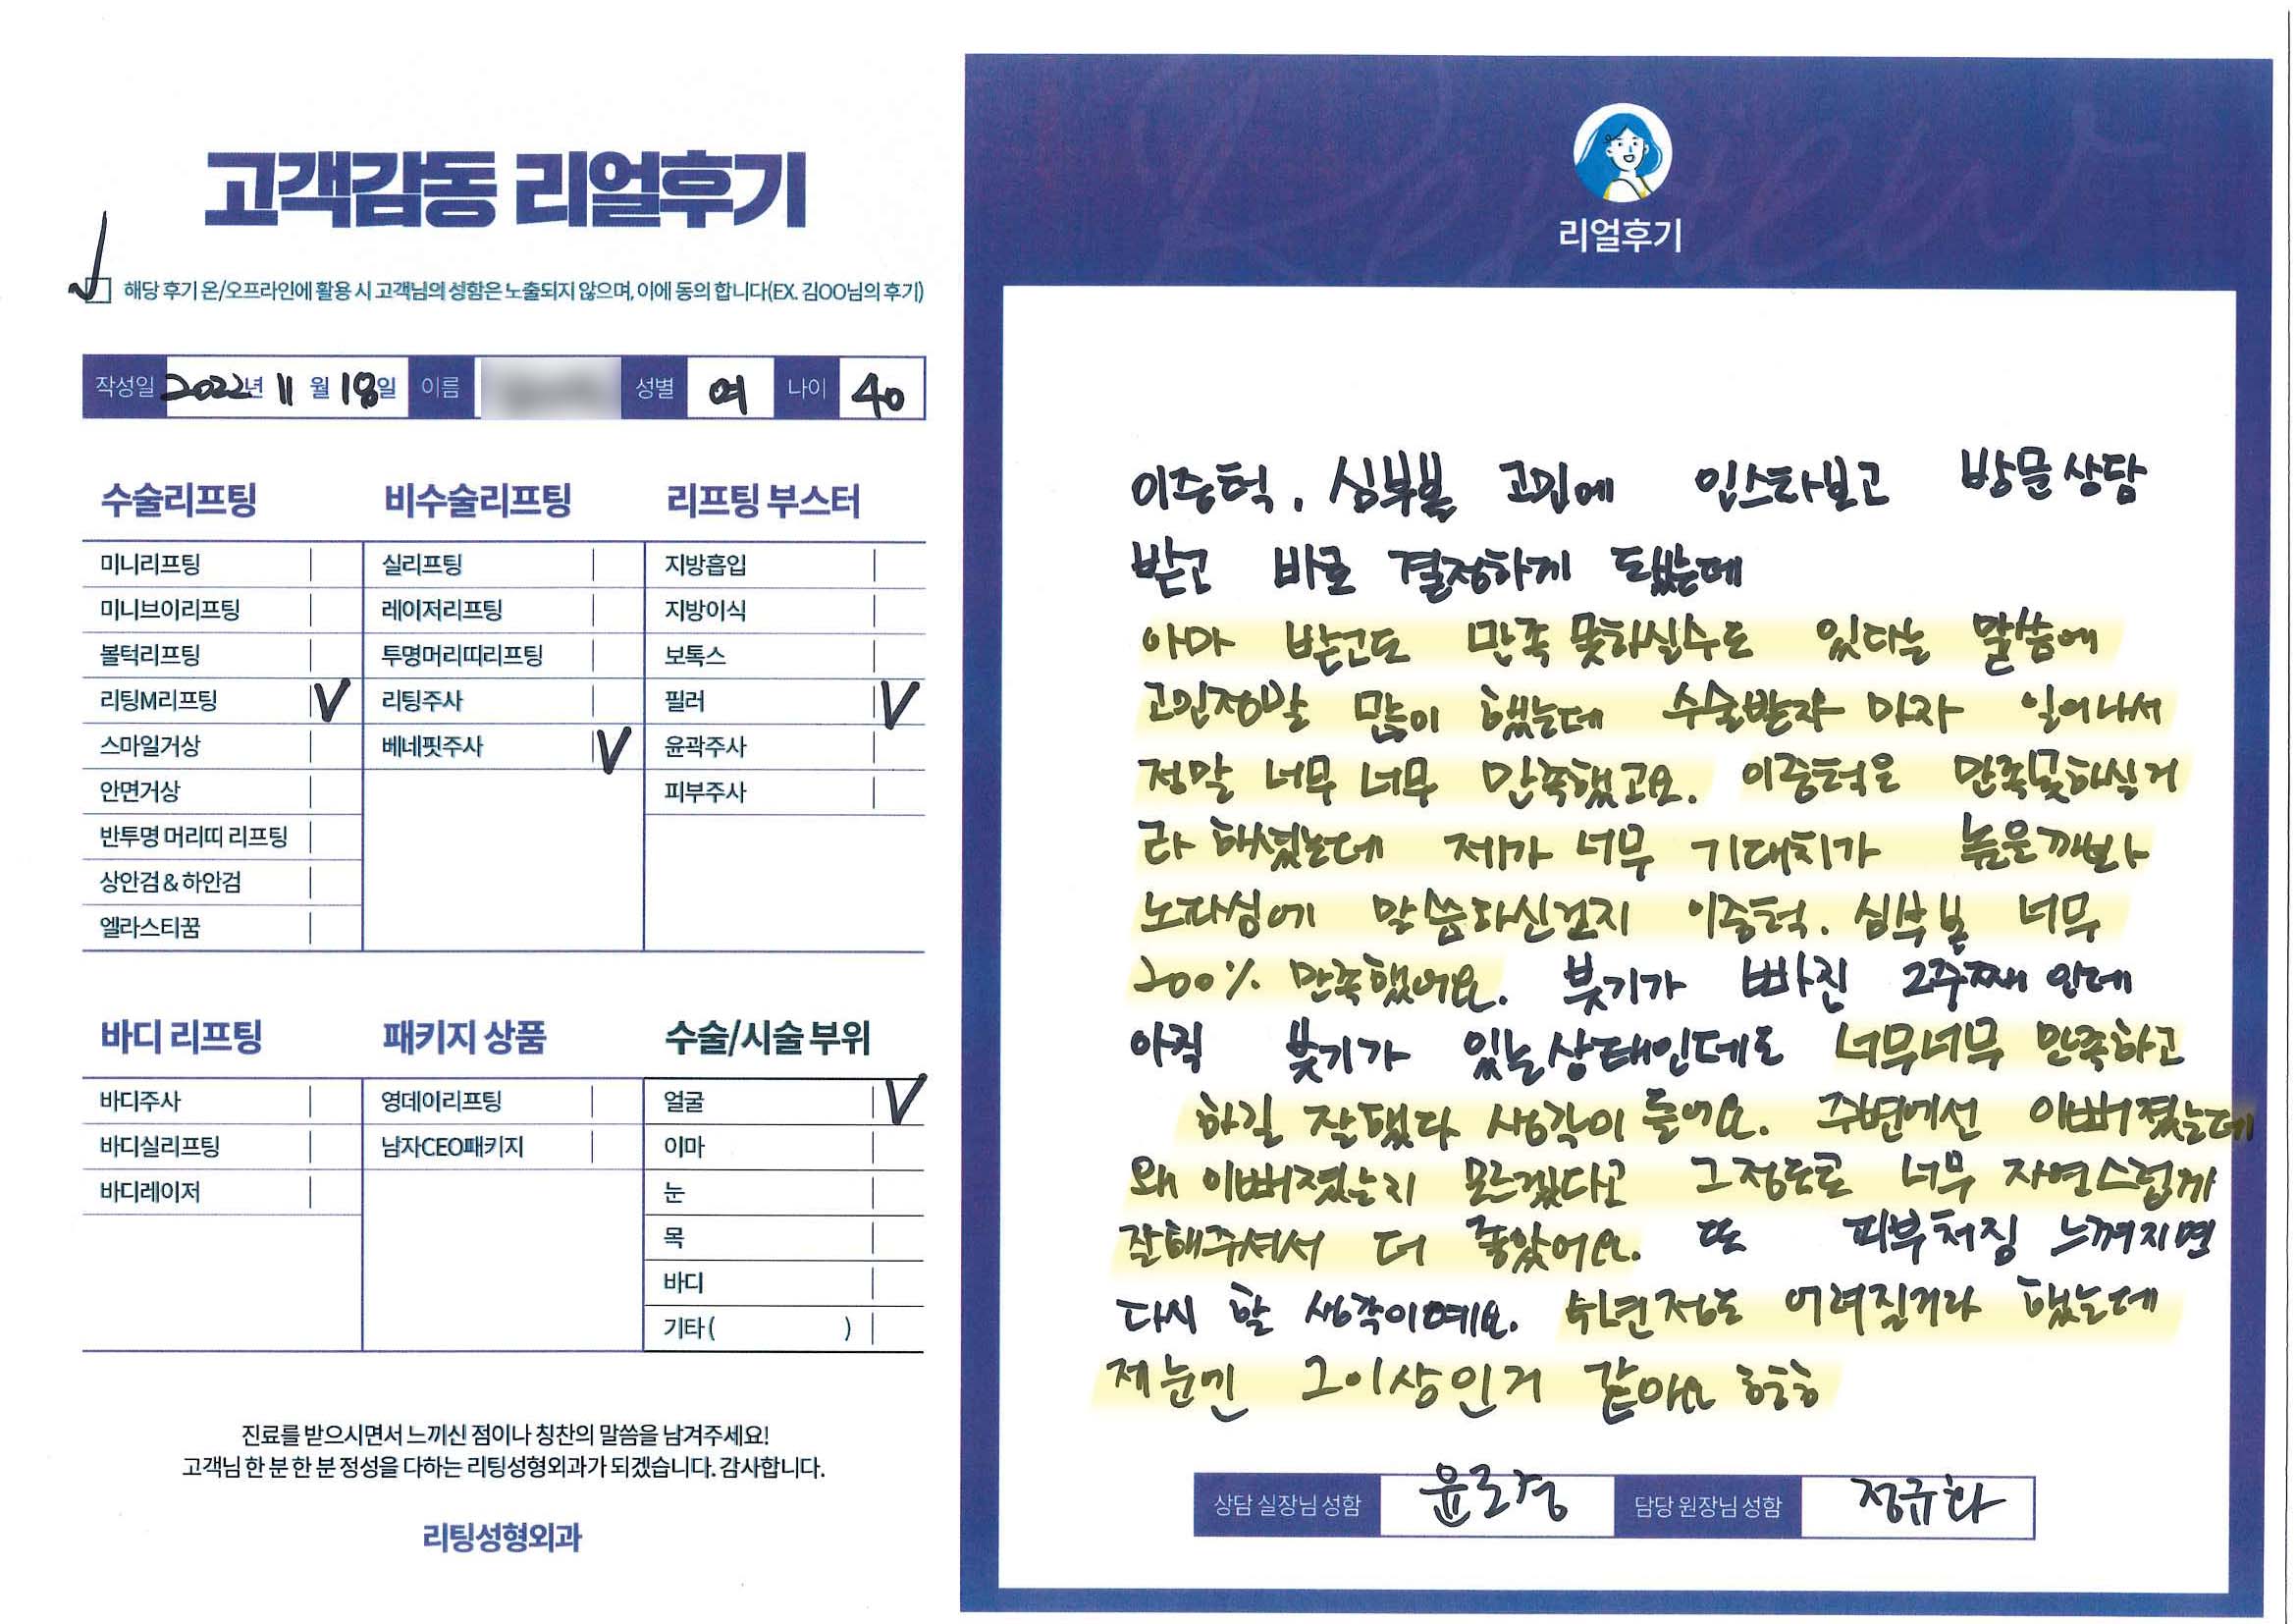 고객감동 리얼후기
해당 후기 온/오프라인에 활용 시 고객님의 성함은 노출되지 않으며, 이에 동의 합니다(EX. 김OO님의 후기)
작성일 2022년 11월 18일 이름 성별 여 나이 40
수술리프팅
미니리프팅
미니브이리프팅
볼턱리프팅
리팅M리프팅 V
스마일거상
안면거상
반투명 머리띠 리프팅
상안검 & 하안검
엘라스티꿈
비수술리프팅
실리프팅
레이저리프팅
투명머리띠리프팅
리팅주사
베네핏주사 V
리프팅 부스터
지방흡입
지방이식
보톡스
필러 V
윤곽주사
피부주사
바디 리프팅
바디주사
바디실리프팅
바디레이저
패키지 상품
영데이리프팅
남자CEO패키지
수술/시술 부위
얼굴 V
이마
눈
목
바디
기타 ( )
진료를 받으시면서 느끼신 점이나 칭찬의 말씀을 남겨주세요!
고객님 한 분 한 분 정성을 다하는 리팅성형외과가 되겠습니다. 감사합니다.
리팅성형외과
Review
리얼후기
이중턱. 심부볼 고민에 인스타보고 방문상담
받고 바로 결정하게 됐는데
아마 받고도 만족 못하실수도 있다는 말씀에
고민정말 많이 했는데 수술받자 마자 일어나서
정말 너무 너무 만족했고요. 이중턱은 만족못하실거
라 하셨는데 제가 너무 기대치가 높은까봐
노파심에 말씀하신건지 이중턱. 심부볼 너무
200% 만족했어요. 붓기가 빠진 2주째 인데
아직 붓기가 있는상태인데도 너무너무 만족하고
하길 잘했다 생각이 들어요. 주변에선 이뻐졌는데
왜 이뻐졌는지 모르겠다고 그정도로 너무 자연스럽게
잘해주셔서 더 좋았어요. 또 피부처짐 느껴지면
다시 할 생각이예요. 5년정도 어려질거라 했는데
제눈엔 그이상인거 같아요 ㅎㅎㅎ
상담 실장님 성함 담당 원장님 성함 정규화